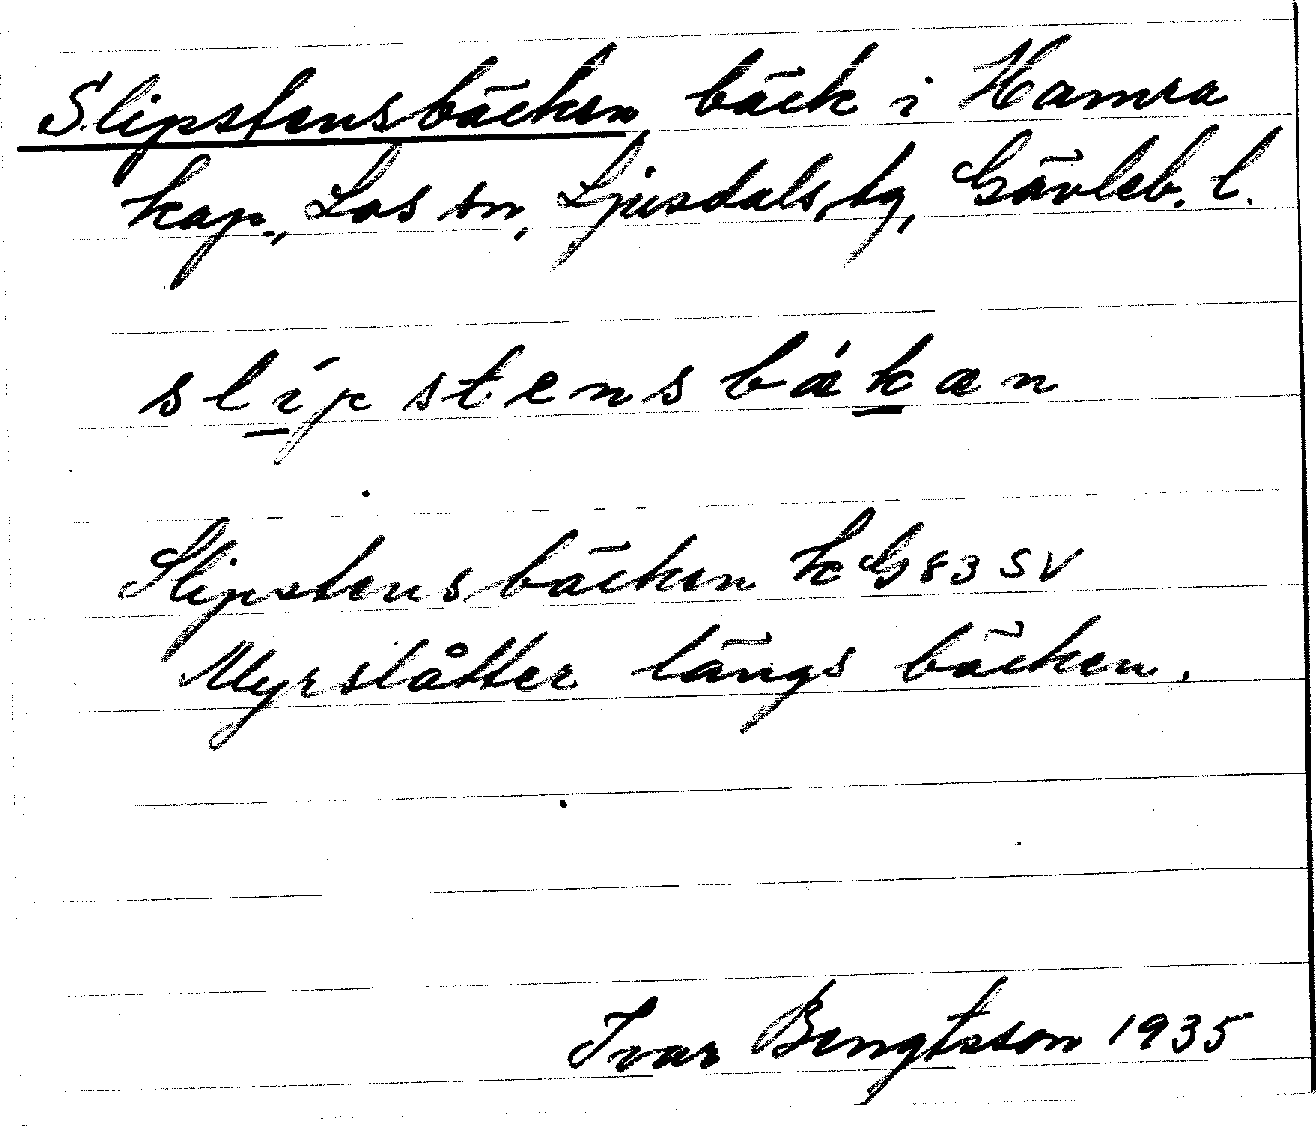 Slipstensbäcken, bäck i Hamra
kap., Los sn, Ljusdals tg, Gävleb. l.
slípstensbákan
Slipstensbäcken kG83 SV
Myrslåtter längs bäcken.
Ivar Bengtsson 1935